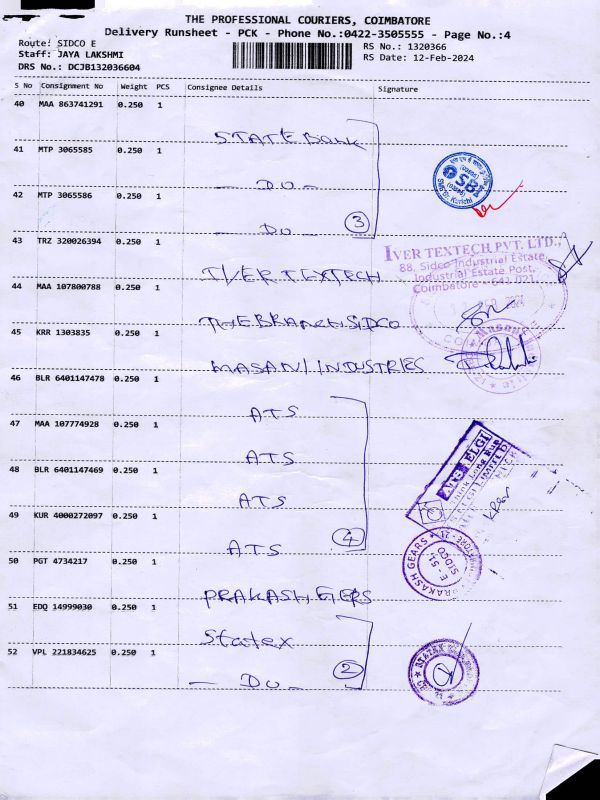 THE PROFESSIONAL COURIERS, COIMBATORE
Delivery Runsheet - PCK - Phone No.:0422-3505555 - Page No.:4
Route: SIDCO E
RS No.: 1320366
Staff: JAYA LAKSHMI
RS Date: 12-Feb-2024
DRS No.: DCJB132036604
S No Consignment No Weight PCS Consignee Details Signature
40 MAA 863741291 0.250 1
STATE Bank
41 MTP 3065585 0.250 1
- DO -
42 MTP 3065586 0.250 1
- DO - 3
SB
43 TRZ 320026394 0.250 1
IVER TEXTECH
IVER TEXTECH PVT. LTD.,
88, Sidco Industrial Estate,
Industrial Estate Post,
Coimbatore - 641 021
44 MAA 107800788 0.250 1
SIDCO
45 KRR 1303835 0.250 1
MASANI INDUSTRIES
46 BLR 6401147478 0.250 1
ATS
47 MAA 107774928 0.250 1
ATS
48 BLR 6401147469 0.250 1
ATS
ELGI
49 KUR 4000272097 0.250 1
ATS 4
50 PGT 4734217 0.250 1
PRAKASH GERS
PRAKASH GEARS
SIDCO
51 EDQ 14999030 0.250 1
Statex
52 VPL 221834625 0.250 1
- DO - 2
STATEX